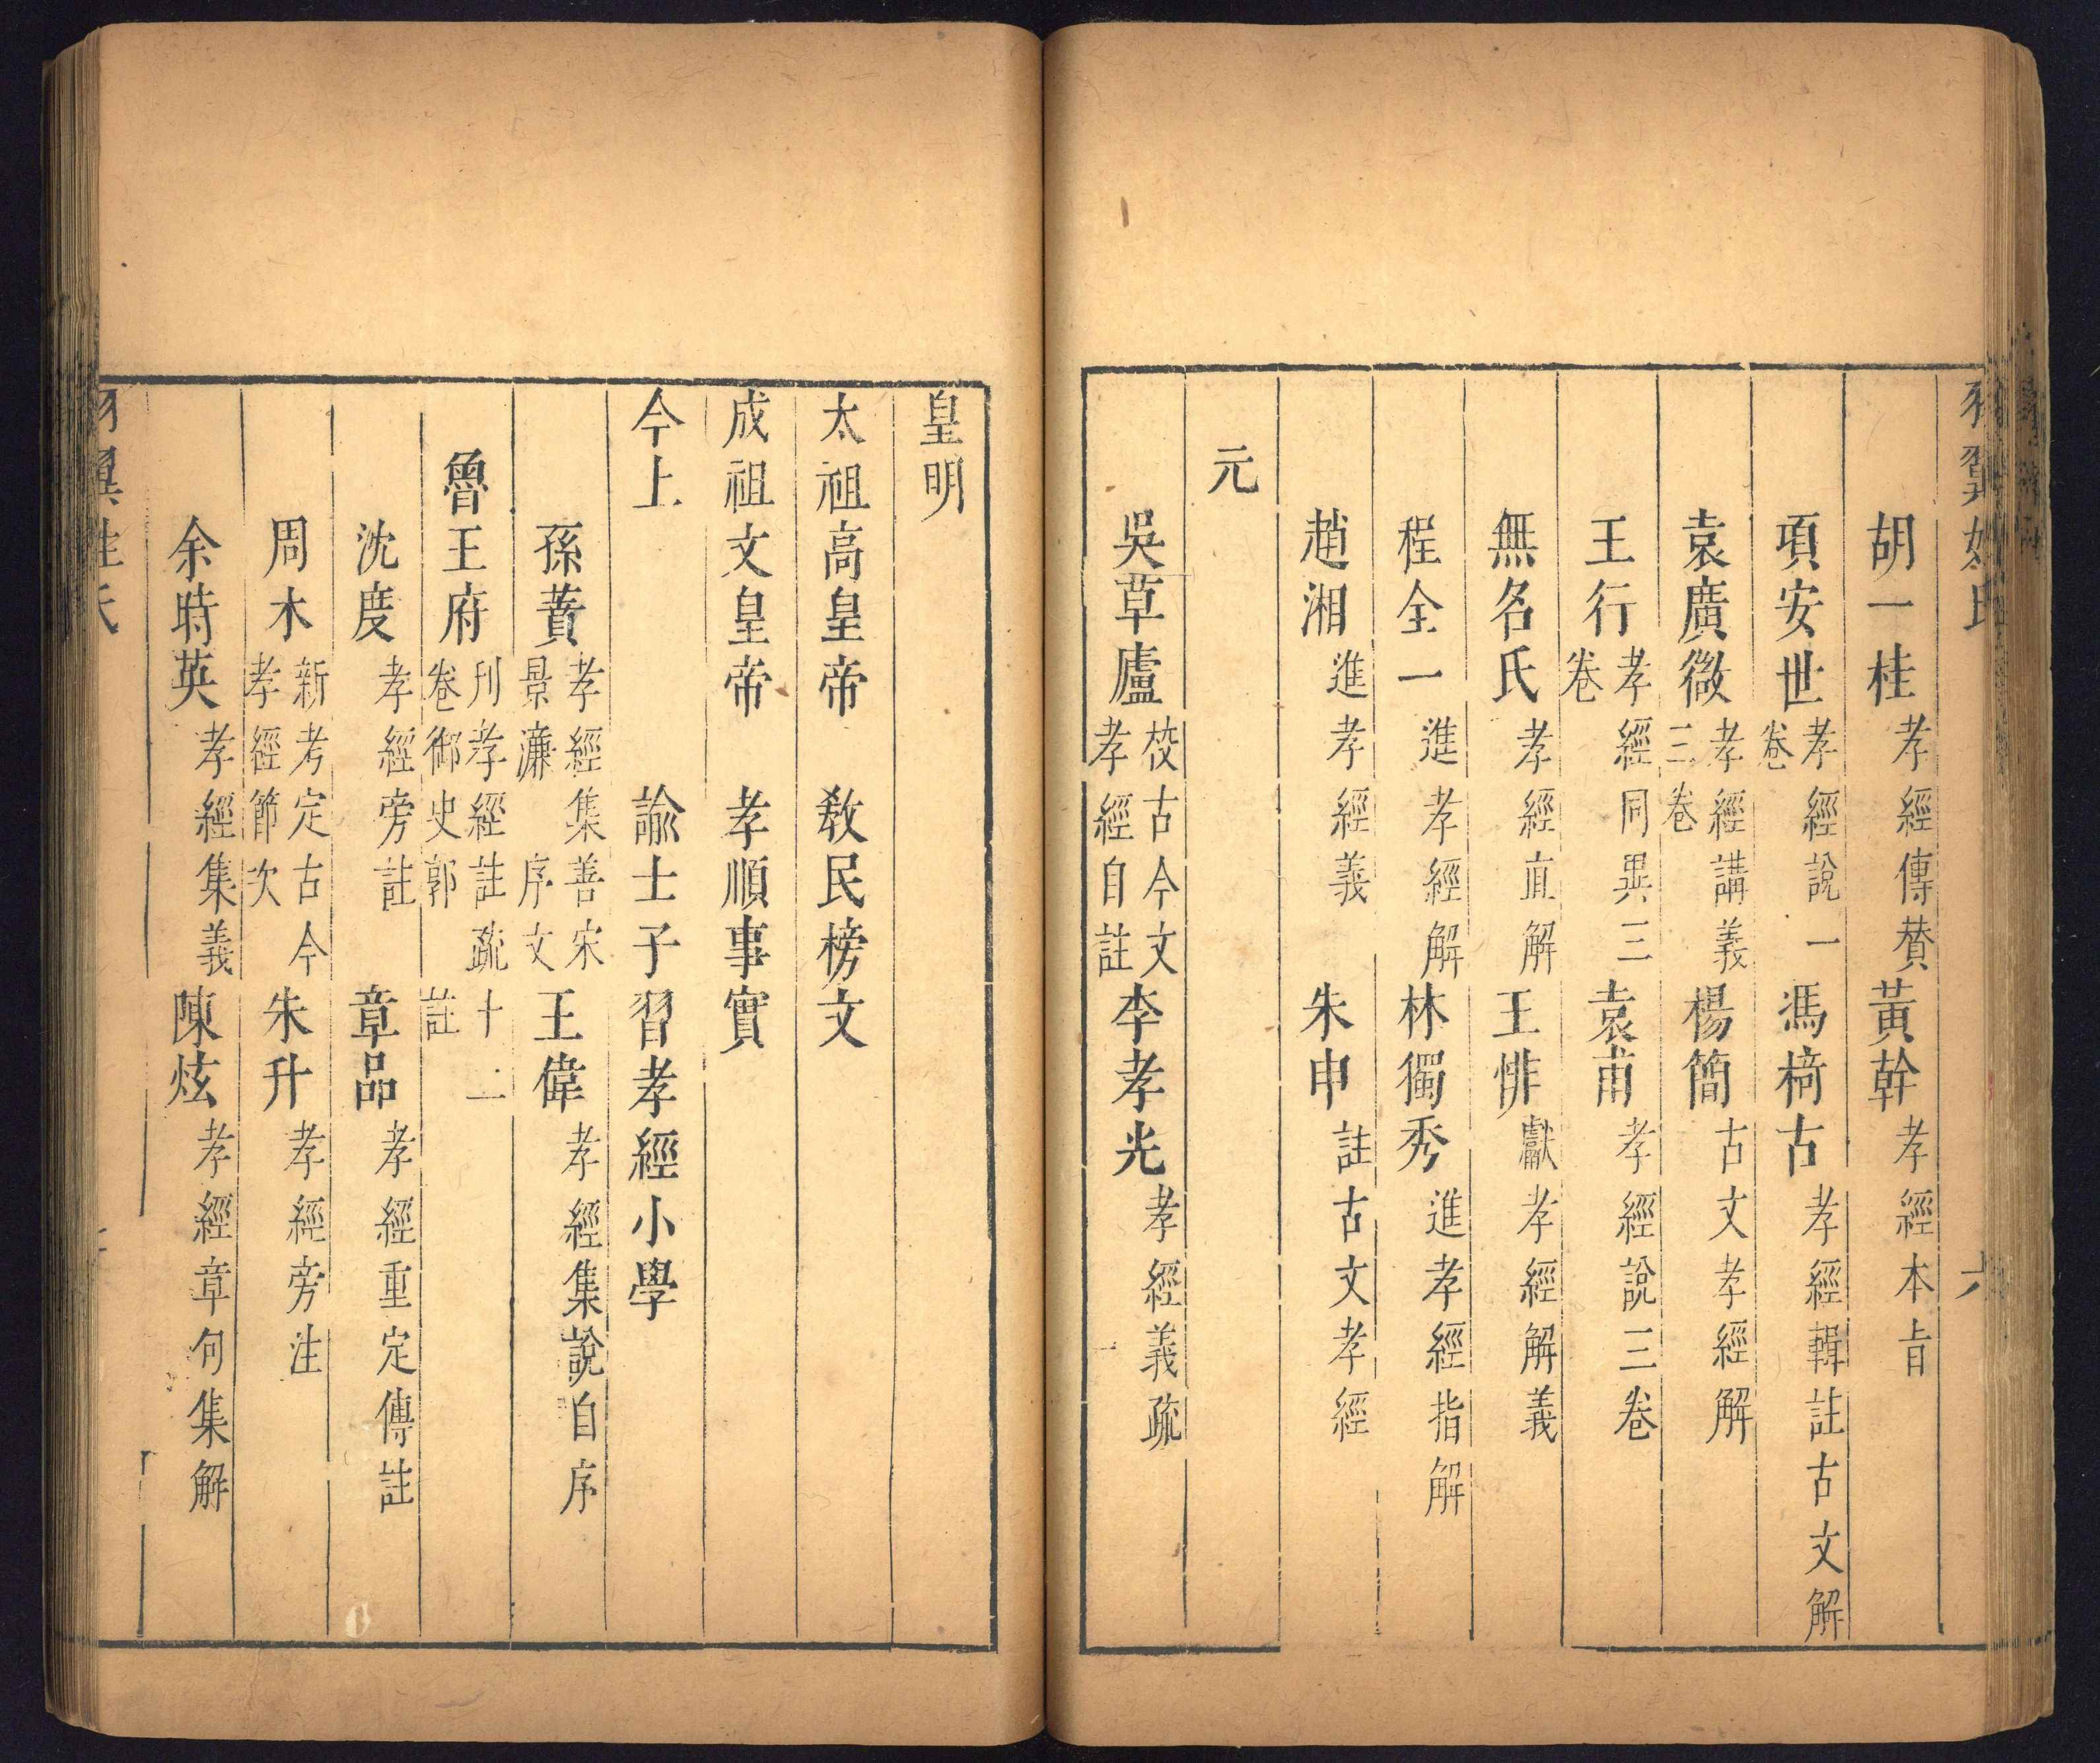 胡一桂孝經傳賛黃幹孝經本㫖
項安世孝經說一卷馮椅古孝經輯註古文解
袁廣微孝經講義三卷楊簡古文孝經解
王行孝經同異三卷袁甫孝經說三卷
無名氏孝經直解王悱獻孝經解義
程全一進孝經解林獨秀進孝經指解
趙湘進孝經義朱申註古文孝經
元
吳草廬校古今文孝經自註李孝光孝經義疏
皇明
太祖高皇帝教民榜文
成祖文皇帝孝順事實
今上諭士子習孝經小學
孫蕡孝經集善宋景濂序文王偉孝經集說自序
魯王府刋孝經註疏十二卷御史郭註
沈度孝經旁註章品孝經重定傳註
周木新考定古今孝經節次朱升孝經旁注
余時英孝經集義陳炫孝經章句集解